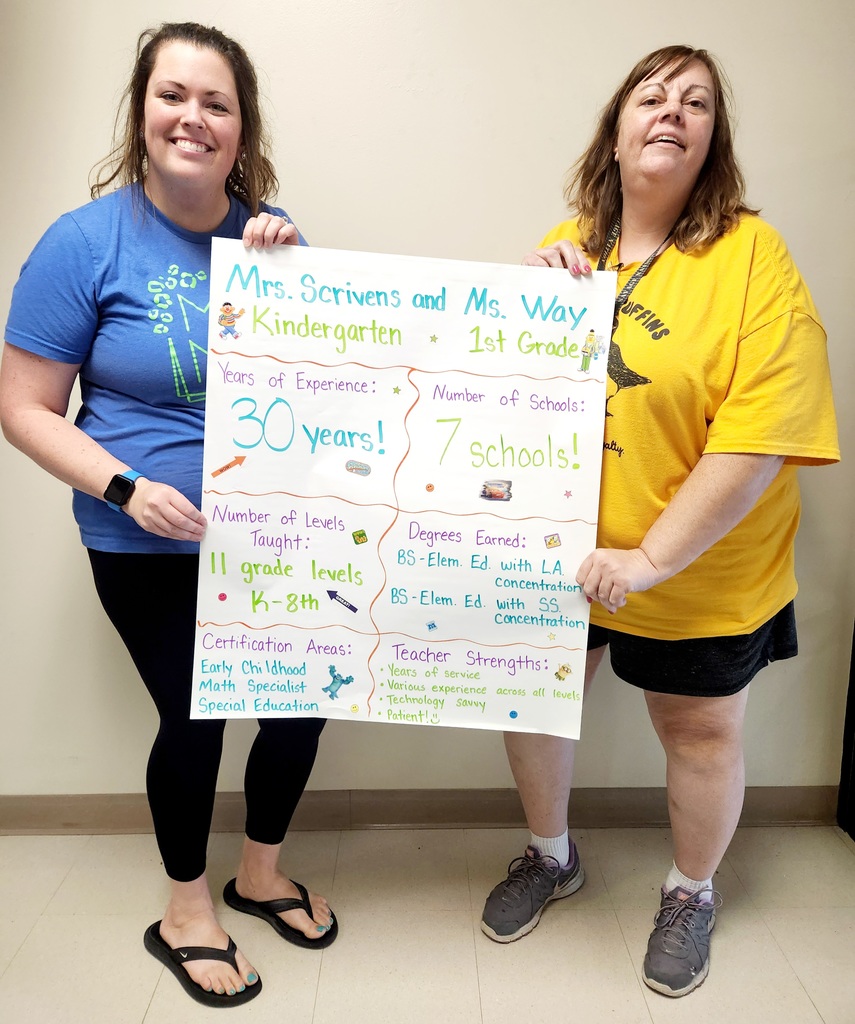 Mrs. Scrivens and Ms. Way
Kindergarten
1st Grade
Years of Experience:
30 years!
Number of Schools:
7 schools!
Number of Levels
Taught:
11 grade levels
K-8th
Degrees Earned:
BS-Elem. Ed. with L.A.
concentration
BS-Elem. Ed. with S.S.
concentration
Certification Areas:
Early Childhood
Math Specialist
Special Education
Teacher Strengths:
• Years of service
• Various experience across all levels
• Technology savvy
• Patient!
UFFINS
alty.